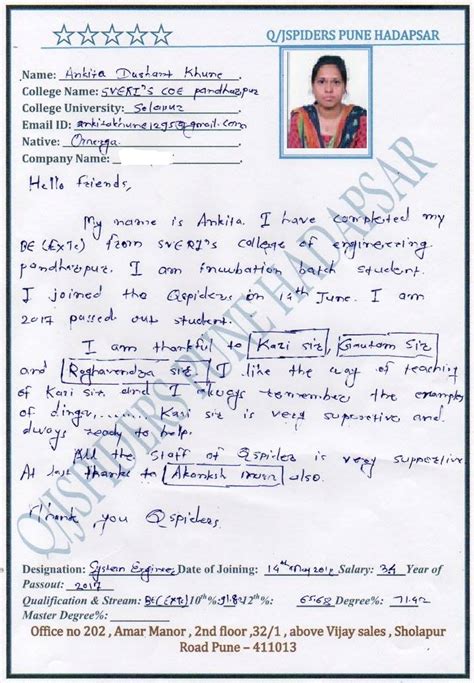 Q/JSPIDERS PUNE HADAPSAR
Name: Ankita Dushant Khune
College Name: SVERI's COE pandharpur
College University: Solapur
Email ID: ankitakhune1295@gmail.com
Native: Omerga
Company Name:
Hello friends,
My name is Ankita. I have completed my
BE (EXTC) from SVERI's college of engineering
pandharpur. I am incubation batch student.
I joined the Qspiders on 14th June. I am
2017 passed out student.
I am thankful to Kazi sir, Gautam sir
and Raghavendra sir. I like the way of teaching
of Kazi sir and I always remember the examples
of dinga,....... Kazi sir is very supportive and
always ready to help.
All the staff of Qspider is very supportive.
At last thanks to Akanksh also.
Thank you Qspiders.
Designation: System Engineer Date of Joining: 14th May Salary: Year of
Passout: 2017
Qualification & Stream: BE(EXTC) 10th%: 91.82 12th%: 65.68 Degree%: 71.42
Master Degree%:
Office no 202 , Amar Manor , 2nd floor ,32/1 , above Vijay sales , Sholapur
Road Pune – 411013
Q/JSPIDERS PUNE HADAPSAR